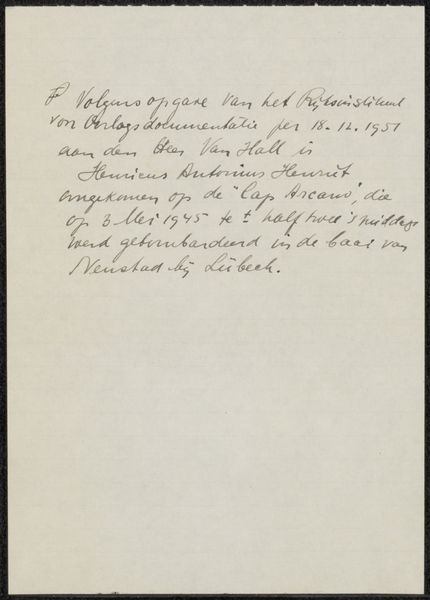 Volgens opgave van het Rijksinstituut
voor Oorlogsdocumentatie per 18-12-1951
aan den Heer Van Hall is
Henricus Antonius Henriët
omgekomen op de "Cap Arcana", die
op 3 Mei 1945 te ± half twee 's middags
werd gebombardeerd in de baai van
Neustad bij Lübeck.